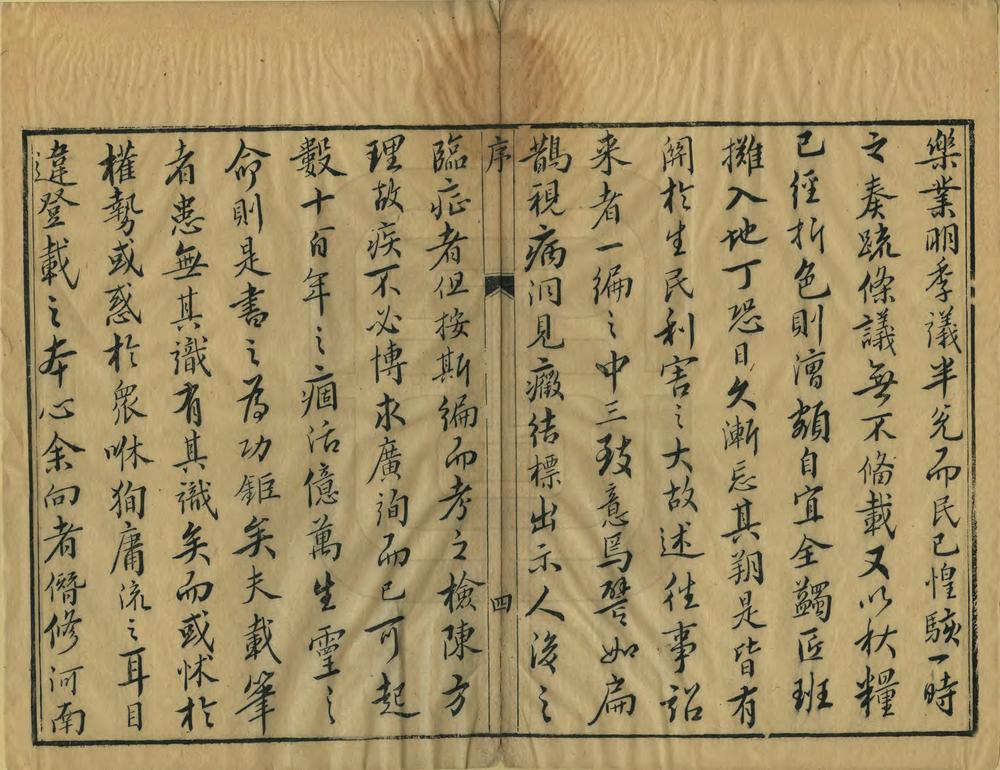 樂業明季議半免而民已惶駭一時
之奏疏條議無不備載又以秋糧
已經折色則漕額自宜全蠲匠班
攤入地丁恐日久漸忘其朔是皆有
關於生民利害之大故述往事詔
来者一編之中三致意焉譬如扁
鵲視病洞見癥結標出示人後之
序 四
臨症者但按斯編而考之檢陳方
理故疾不必博求廣詢而已可起
數十百年之痼活億萬生靈之
命則是書之為功鉅矣夫載筆
者患無其識有其識矣而或怵於
權勢或惑於眾咻狥庸流之耳目
違登載之本心余向者僭修河南